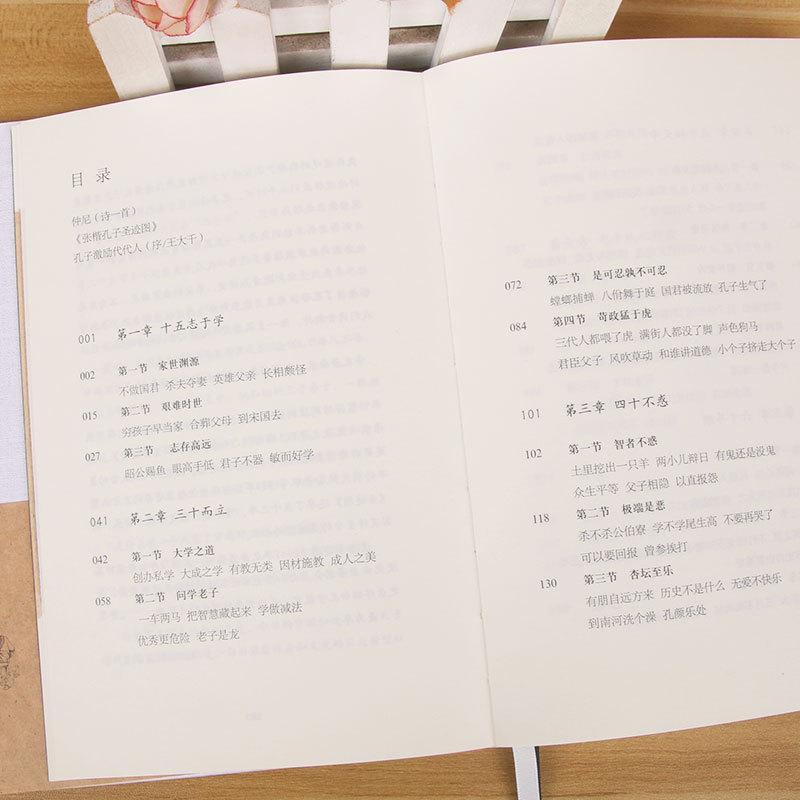 目 录
仲尼（诗一首）
《张楷孔子圣迹图》
孔子激励代代人（序/王大千）
001 第一章 十五志于学
002 第一节 家世渊源
不做国君 杀夫夺妻 英雄父亲 长相颇怪
015 第二节 艰难时世
穷孩子早当家 合葬父母 到宋国去
027 第三节 志存高远
昭公赐鱼 眼高手低 君子不器 敏而好学
041 第二章 三十而立
042 第一节 大学之道
创办私学 大成之学 有教无类 因材施教 成人之美
058 第二节 问学老子
一车两马 把智慧藏起来 学做减法
优秀更危险 老子是龙
072 第三节 是可忍孰不可忍
螳螂捕蝉 八佾舞于庭 国君被流放 孔子生气了
084 第四节 苛政猛于虎
三代人都喂了虎 满街人都没了脚 声色狗马
君臣父子 风吹草动 和谁讲道德 小个子挤走大个子
101 第三章 四十不惑
102 第一节 智者不惑
土里挖出一只羊 两小儿辩日 有鬼还是没鬼
众生平等 父子相隐 以直报怨
118 第二节 极端是恶
杀不杀公伯寮 学不学尾生高 不要再哭了
可以要回报 曾参挨打
130 第三节 杏坛至乐
有朋自远方来 历史不是什么 无爱不快乐
到南河洗个澡 孔颜乐处